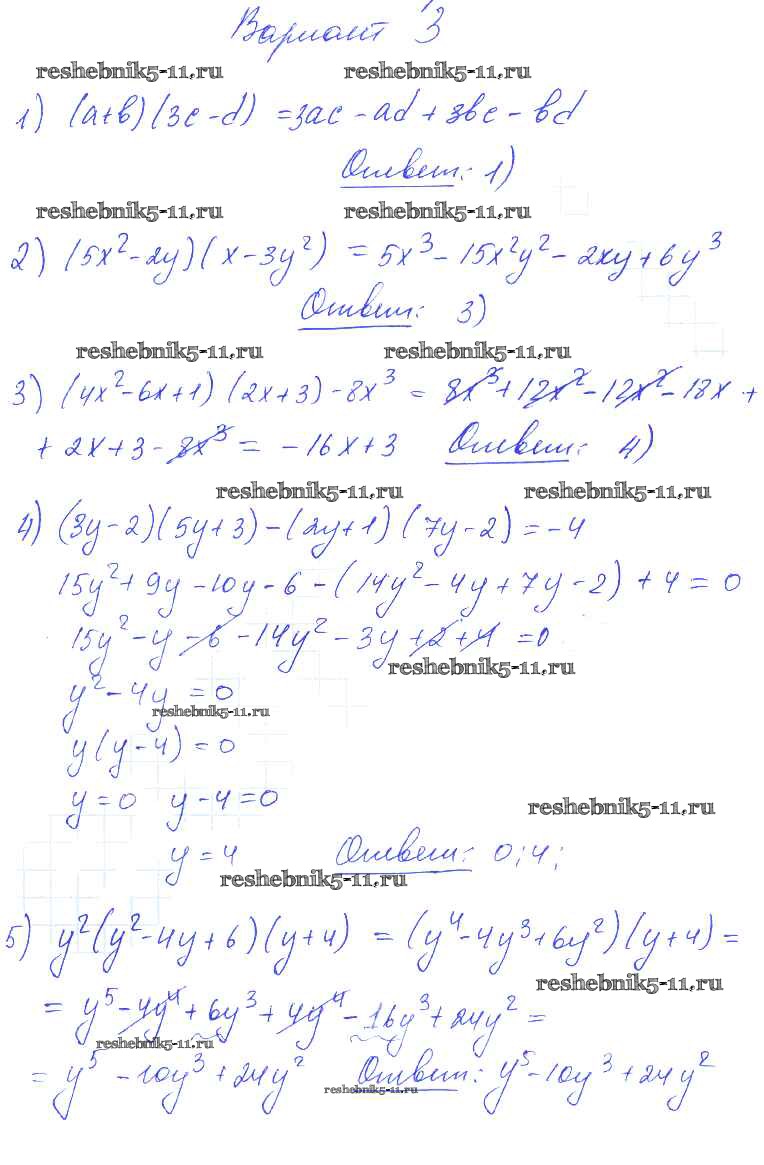 Вариант 3
reshebnik5-11.ru reshebnik5-11.ru
1) (a+b)(3c-d) =3ac-ad+3bc-bd
Ответ: 1)
reshebnik5-11.ru reshebnik5-11.ru
2) (5x²-2y)(x-3y²) = 5x³-15x²y²-2xy+6y³
Ответ: 3)
reshebnik5-11.ru reshebnik5-11.ru
3) (4x²-6x+1)(2x+3)-8x³ = 8x³+12x²-12x²-18x+
+2x+3-8x³ = -16x+3 Ответ: 4)
reshebnik5-11.ru reshebnik5-11.ru
4) (3y-2)(5y+3)-(2y+1)(7y-2)=-4
15y²+9y-10y-6-(14y²-4y+7y-2)+4=0
15y²-y-6-14y²-3y+2+4=0
reshebnik5-11.ru
y²-4y=0
reshebnik5-11.ru
y(y-4)=0
y=0 y-4=0
reshebnik5-11.ru
y=4 Ответ: 0;4;
reshebnik5-11.ru
5) y²(y²-4y+6)(y+4) = (y⁴-4y³+6y²)(y+4)=
reshebnik5-11.ru
= y⁵-4y⁴+6y³+4y⁴-16y³+24y²=
reshebnik5-11.ru
= y⁵-10y³+24y² Ответ: y⁵-10y³+24y²
reshebnik5-11.ru